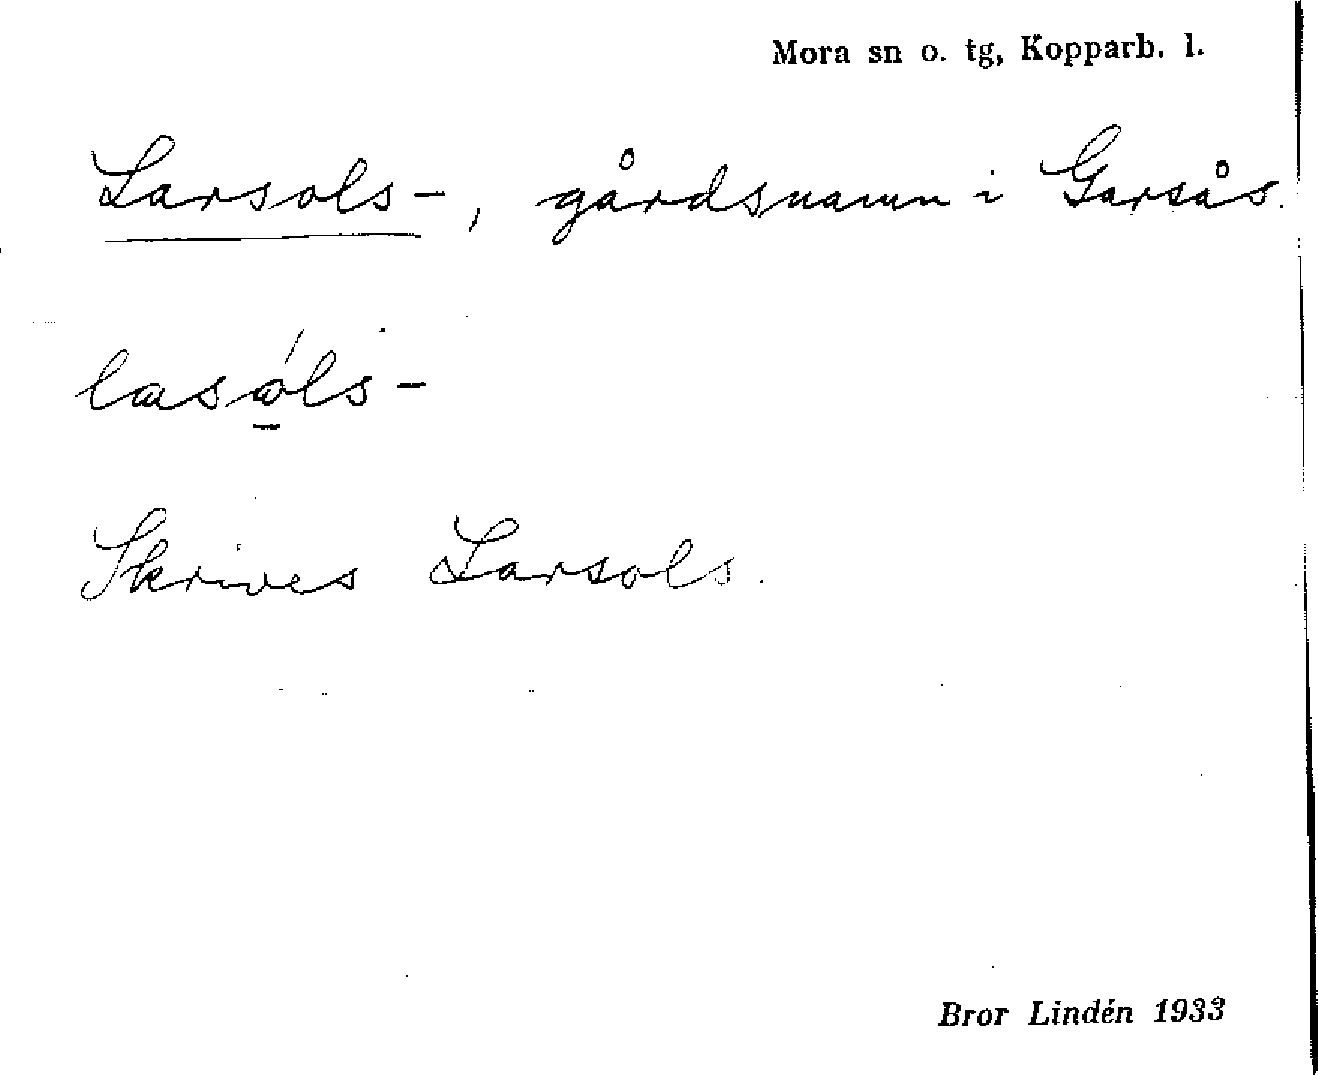 Mora sn o. tg, Kopparb. l.
Larsols-, gårdsnamn i Garsås.
lasǫ́ls-
Skrives Larsols.
Bror Lindén 1933